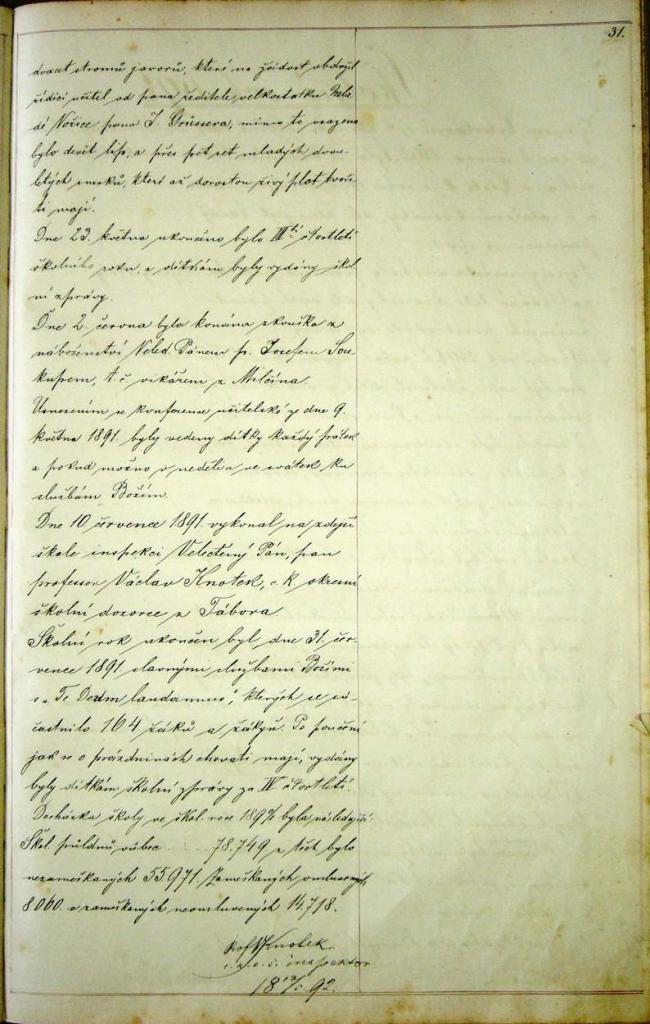 31.
dvacet stromů javorů, které na žádost obdržel
řídící učitel od pana ředitele velkostatku Mla-
dé Vožice pana J. Grüssera, mimo to vsazeno
bylo devět líp, a přes pět set mladých dvou-
letých smrků, které až dorostou živý plot tvoři-
ti mají.
Dne 23. května ukončeno bylo III tí čtvrtletí
školního roku, a dítkám byly vydány škol
ní zprávy.
Dne 2. června byla konána zkouška z
náboženství Veled. Pánem p. Josefem Sou-
kupem, t. č. vikářem z Milčína.
Usnesením se konference učitelské ze dne 9.
května 1891 byly vedeny dítky každý pátek
a pokud možno v neděli a ve svátek ku
službám Božím.
Dne 10 července 1891. vykonal na zdejší
škole inspekci Velectěný Pán, pan
professor Václav Knotek, c. k. okresní
školní dozorce z Tábora.
Školní rok ukončen byl dne 31. čer-
vence 1891 slavnými službami Božími
s „Te Deum laudamus", kterých se sú-
častnilo 164 žáků a žákyň. Po poučení
jak se o prázdninách chovati mají, vydány
byly dítkám školní zprávy za IV čtvrtletí.
Docházka školy ve škol. roce 189%1 byla následující:
Škol. půldnů vůbec 78.749 z těch bylo
nezameškaných 55.971. Zameškaných omluvených
8.060. a zameškaných neomluvených 14.718.
Prof. V. Knotek
c. k. o. š. inspektor
92.